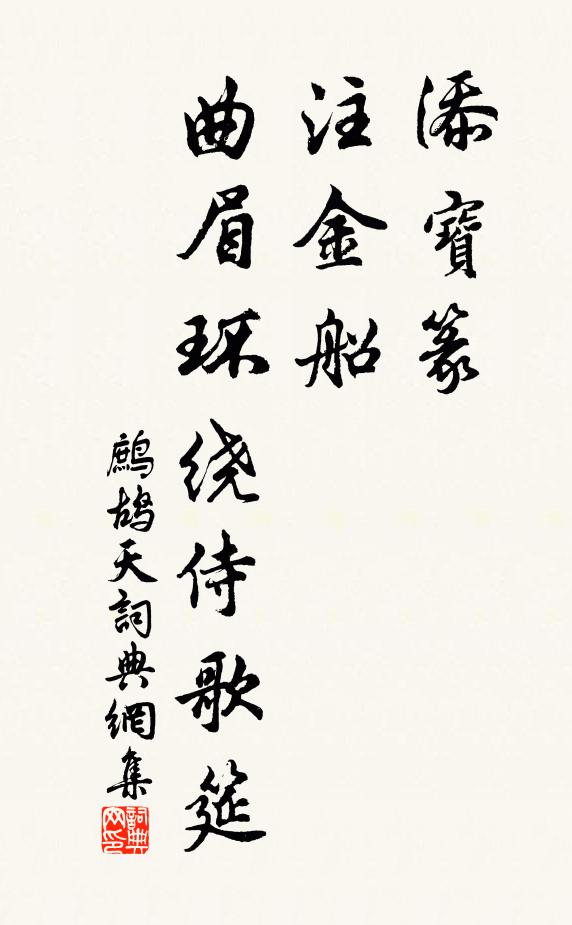 添寶篆
注金船
曲眉环绕侍歌筵
鷓鴣天詞典網集
詞典网印